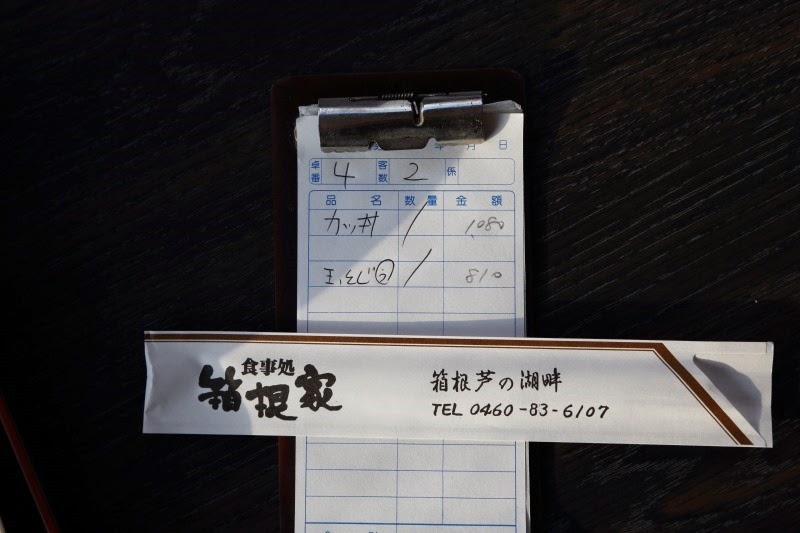 年 月 日
卓番 4 客数 2 係
品 名 数 量 金 額
カツ丼 1 1,080
玉とじ 1 810
食事処
箱根家
箱根芦の湖畔
TEL 0460-83-6107